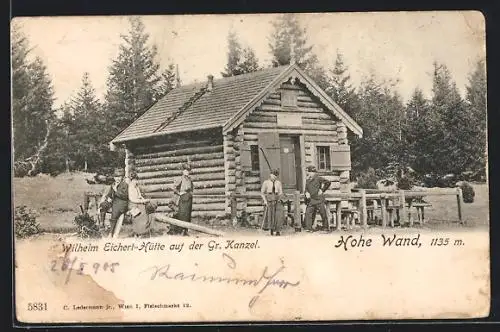 Wilhelm Eichert-Hütte auf der Gr. Kanzel.
Hohe Wand, 1135 m.
5831 C. Ledermann jr., Wien I, Fleischmarkt 12.